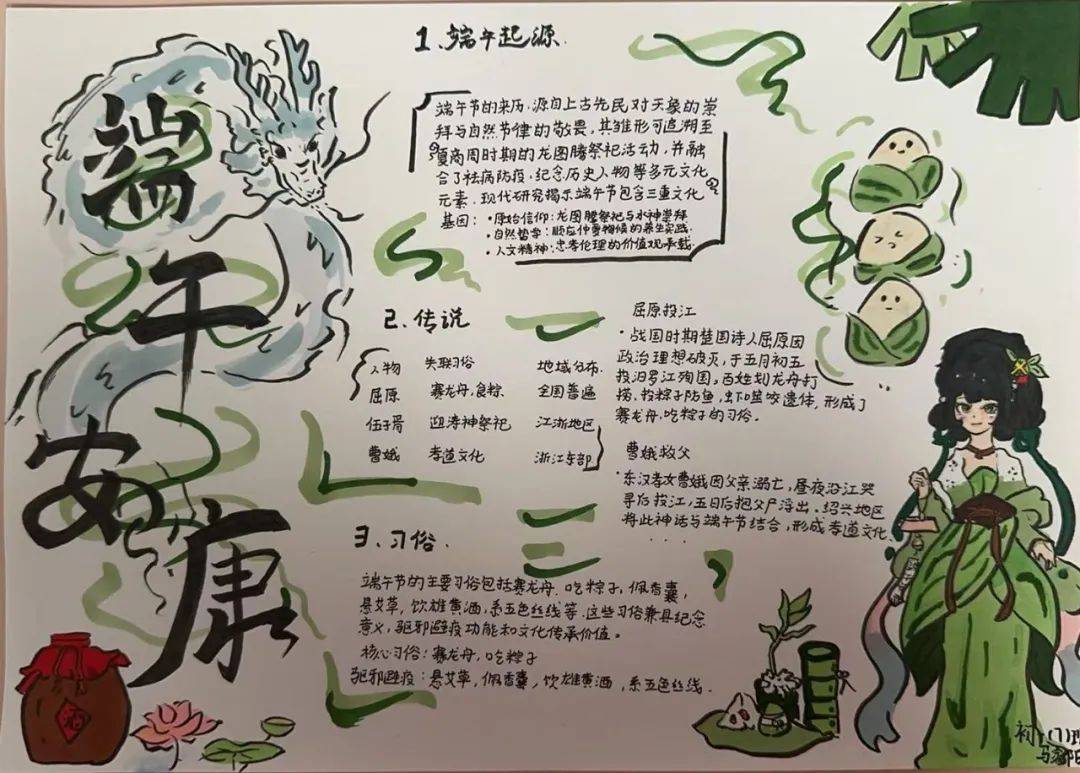 端午安康
1、端午起源.
端午节的来历，源自上古先民对天象的崇
拜与自然节律的敬畏，其雏形可追溯至
夏商周时期的龙图腾祭祀活动，并融
合了祛病防疫、纪念历史人物等多元文化
元素，现代研究揭示端午节包含三重文化
基因：•原始信仰：龙图腾祭祀与水神崇拜
•自然哲学：顺应仲夏物候的养生实践.
•人文精神：忠孝伦理的价值观承载
2、传说
人物 关联习俗 地域分布.
屈原 赛龙舟，食粽 全国普遍
伍子胥 迎涛神祭祀 江浙地区
曹娥 孝道文化 浙江东部
屈原投江
•战国时期楚国诗人屈原因
政治理想破灭，于五月初五
投汨罗江殉国，百姓划龙舟打
捞、投粽子防鱼虾噬咬遗体，形成了
赛龙舟、吃粽子的习俗。
曹娥救父
•东汉孝女曹娥因父亲溺亡，昼夜沿江哭
寻后投江，五日后抱父尸浮出。绍兴地区
将此神话与端午节结合，形成孝道文化
....
3、习俗.
端午节的主要习俗包括赛龙舟、吃粽子，佩香囊，
悬艾草，饮雄黄酒，系五色丝线等.这些习俗兼具纪念
意义，驱邪避疫功能和文化传承价值。
核心习俗：赛龙舟，吃粽子
驱邪避疫：悬艾草，佩香囊，饮雄黄酒，系五色丝线.